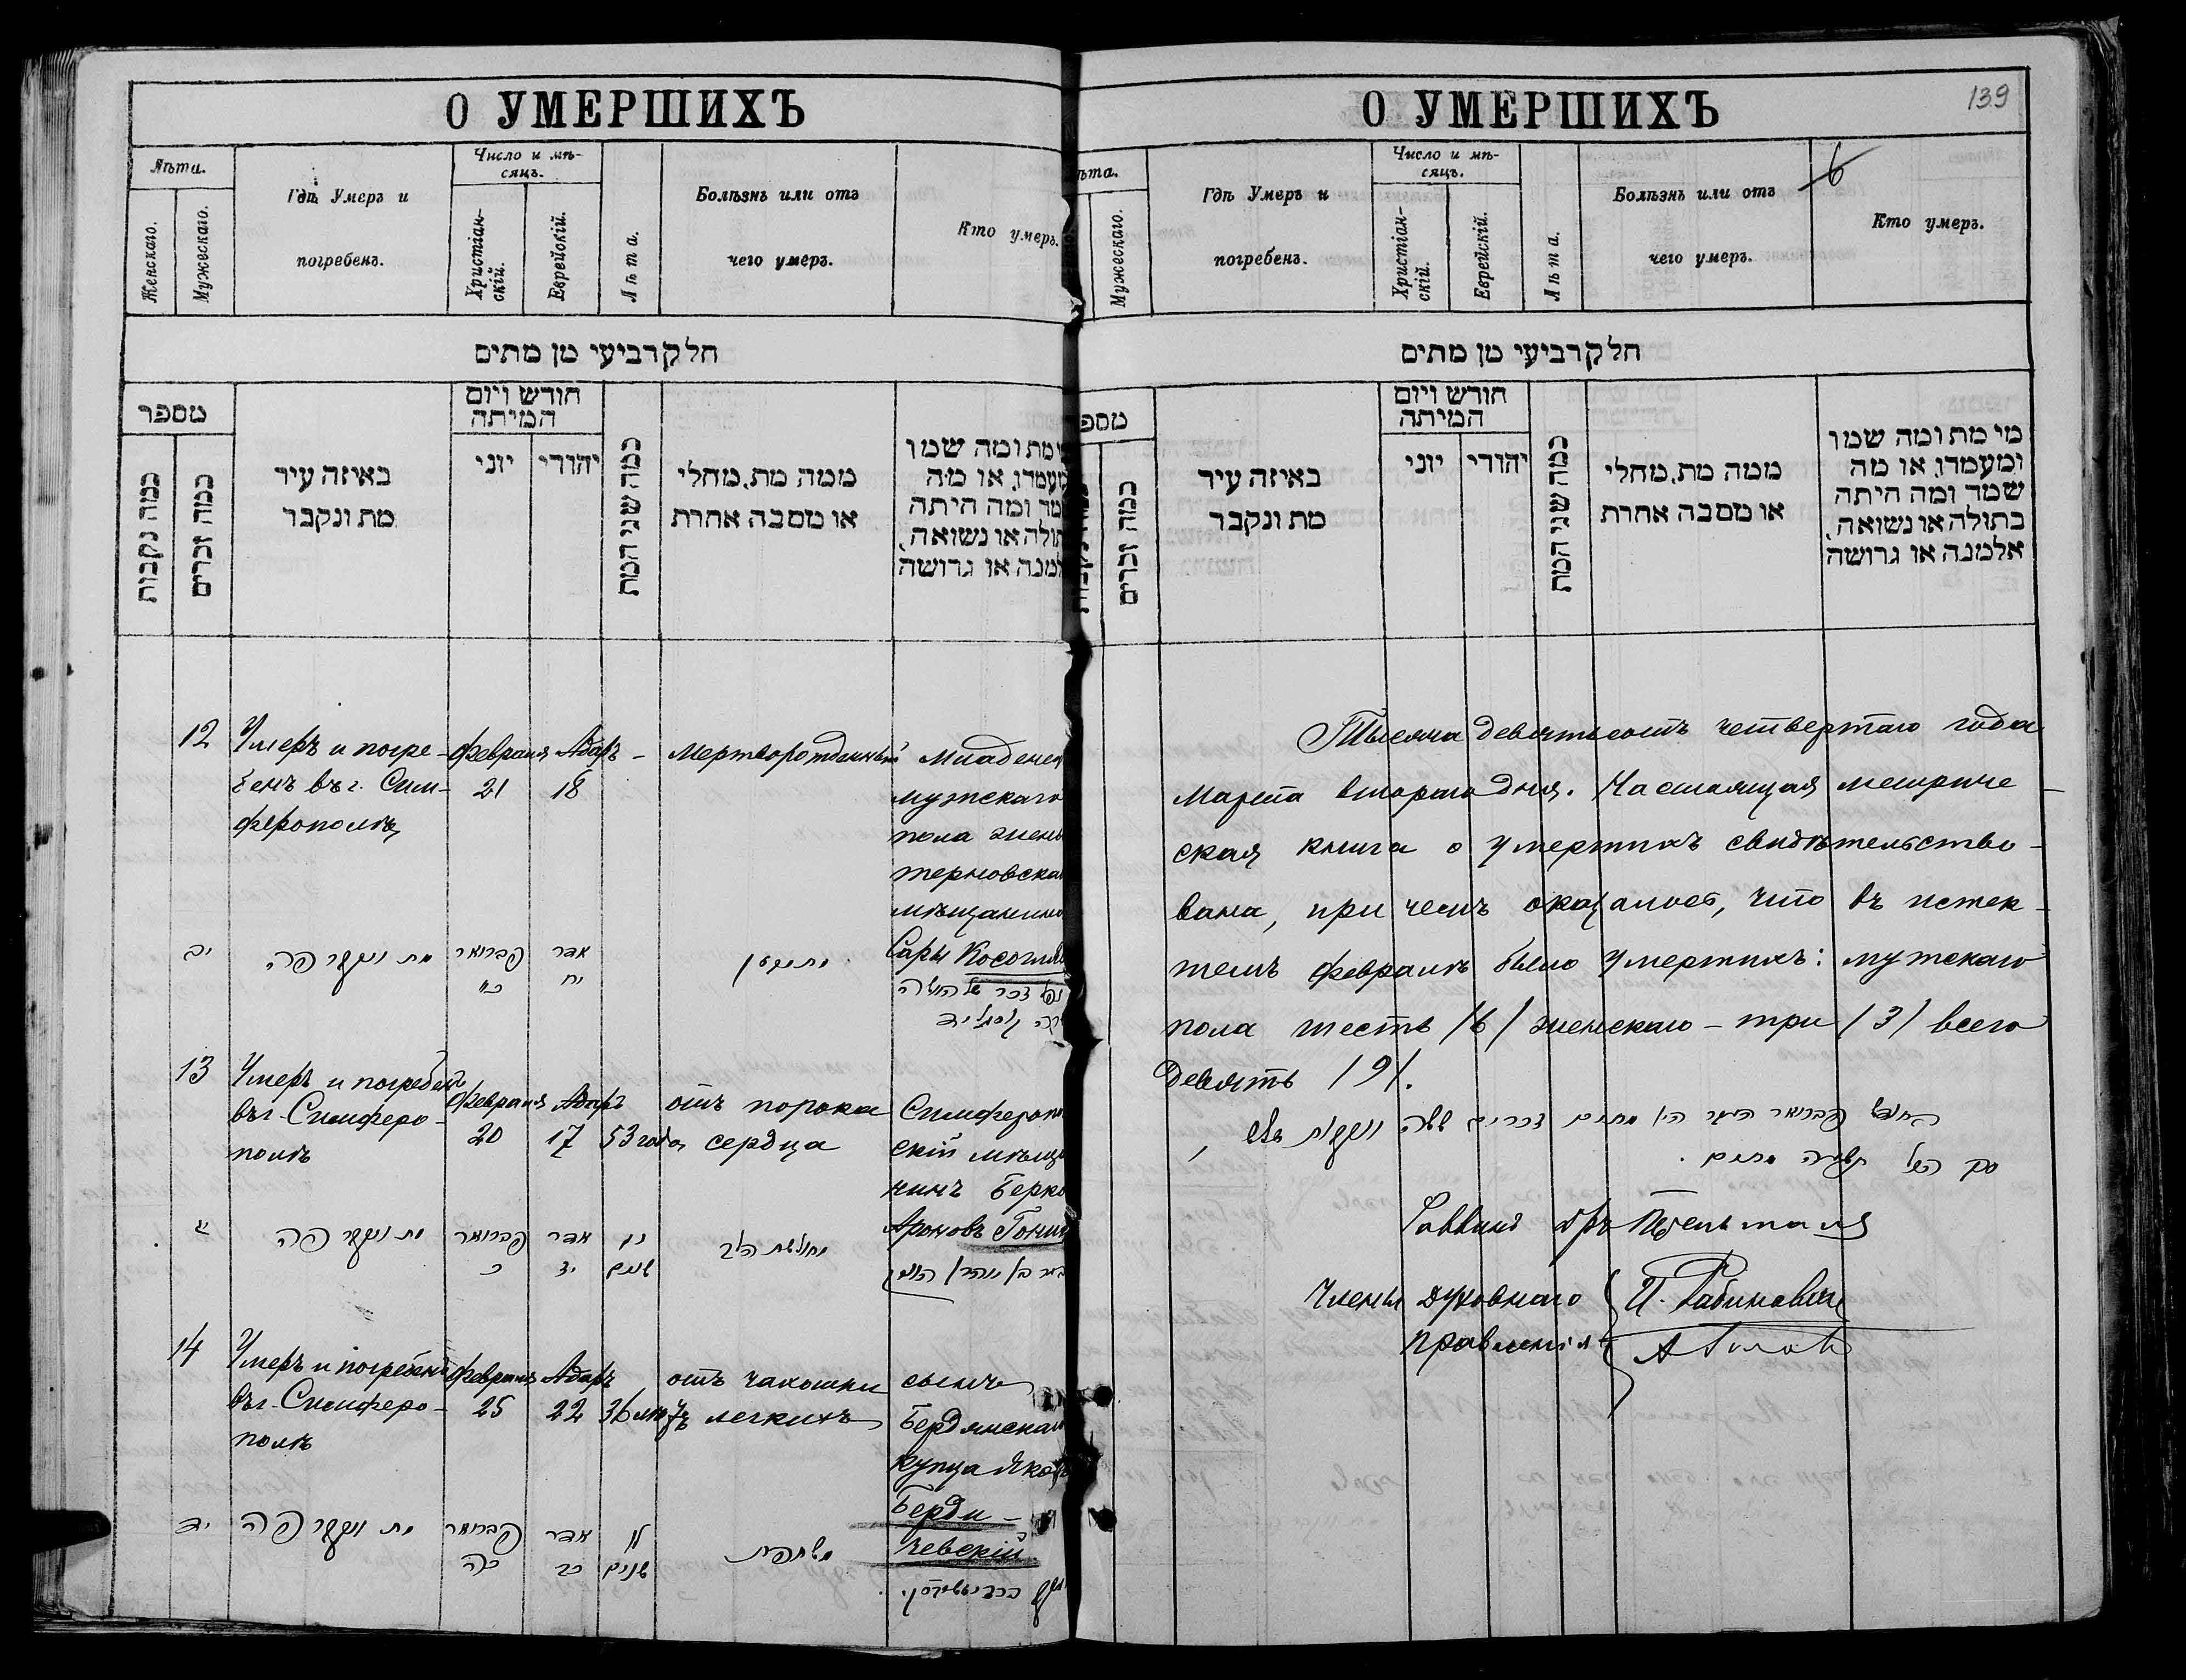 О УМЕРШИХЪ
Лѣта.
Женскаго.
Мужескаго.
Гдѣ Умеръ и
погребенъ.
Число и мѣ-
сяцъ.
Христіан-
скій.
Еврейскій.
Лѣта.
Болѣзнь или отъ
чего умеръ.
Кто умеръ.
חלק רביעי מן מתים
מספר
כמה נקבות
כמה זכרים
באיזה עיר
מת ונקבר
חודש ויום
המיתה
יוני
יהודי
כמה שני המת
ממה מת, מחלי
או מסבה אחרת
ימת ומה שמו
מעמדו, או מה
מר ומה היתה
תולה או נשואה,
למנה או גרושה
12
Умеръ и погре-
бенъ въ г. Сим-
ферополѣ
Февраля
21
Адаръ
18
-
Мертворожденный
Младенецъ
мужскаго
пола
мѣщанин
Сары
יב
מת ונקבר פה
פברואר
אדר
יח
13
Умеръ и погребенъ
въ г. Симферо-
полѣ
Февраля
20
Адаръ
17
53 года
отъ порока
сердца
Симферопо
скій мѣща
нинъ Берко
Ароновъ
מת ונקבר פה
פברואר
כ
אדר
יז
נג
שנים
מחולשת הלב
14
Умеръ и погребенъ
въ г. Симферо-
полѣ
Февраля
25
Адаръ
22
36 лѣтъ
отъ чахотки
легкихъ
сынъ
Бердянскаго
купца Яков
Берди-
чевскій
יד
מת ונקבר פה
פברואר
כה
אדר
כב
לו
שנים
משחפת
О УМЕРШИХЪ
139
6
ѣта.
Мужескаго.
Гдѣ Умеръ и
погребенъ.
Число и мѣ-
сяцъ.
Христіан-
скій.
Еврейскій.
Лѣта.
Болѣзнь или отъ
чего умеръ.
Кто умеръ.
חלק רביעי מן מתים
מספ
כמה זכרים
באיזה עיר
מת ונקבר
חודש ויום
המיתה
יוני
יהודי
כמה שני המת
ממה מת, מחלי
או מסבה אחרת
מי מת ומה שמו
ומעמדו, או מה
שמר ומה היתה
בתולה או נשואה,
אלמנה או גרושה
Тысяча девятьсотъ четвертаго года
Марта второго дня. Настоящая метриче-
ская книга о умершихъ свидѣтельство-
вана, при чемъ оказалось, что въ истек-
шемъ февралѣ было умершихъ: мужскаго
пола шесть /6/ женскаго - три /3/ всего
девять /9/.
בחודש פברואר העבר היו מתים זכרים ששה ונקבות שלש,
סך הכל תשעה מתים.
Раввинъ
Члены Духовнаго
Правленія
И. Рабиновичъ